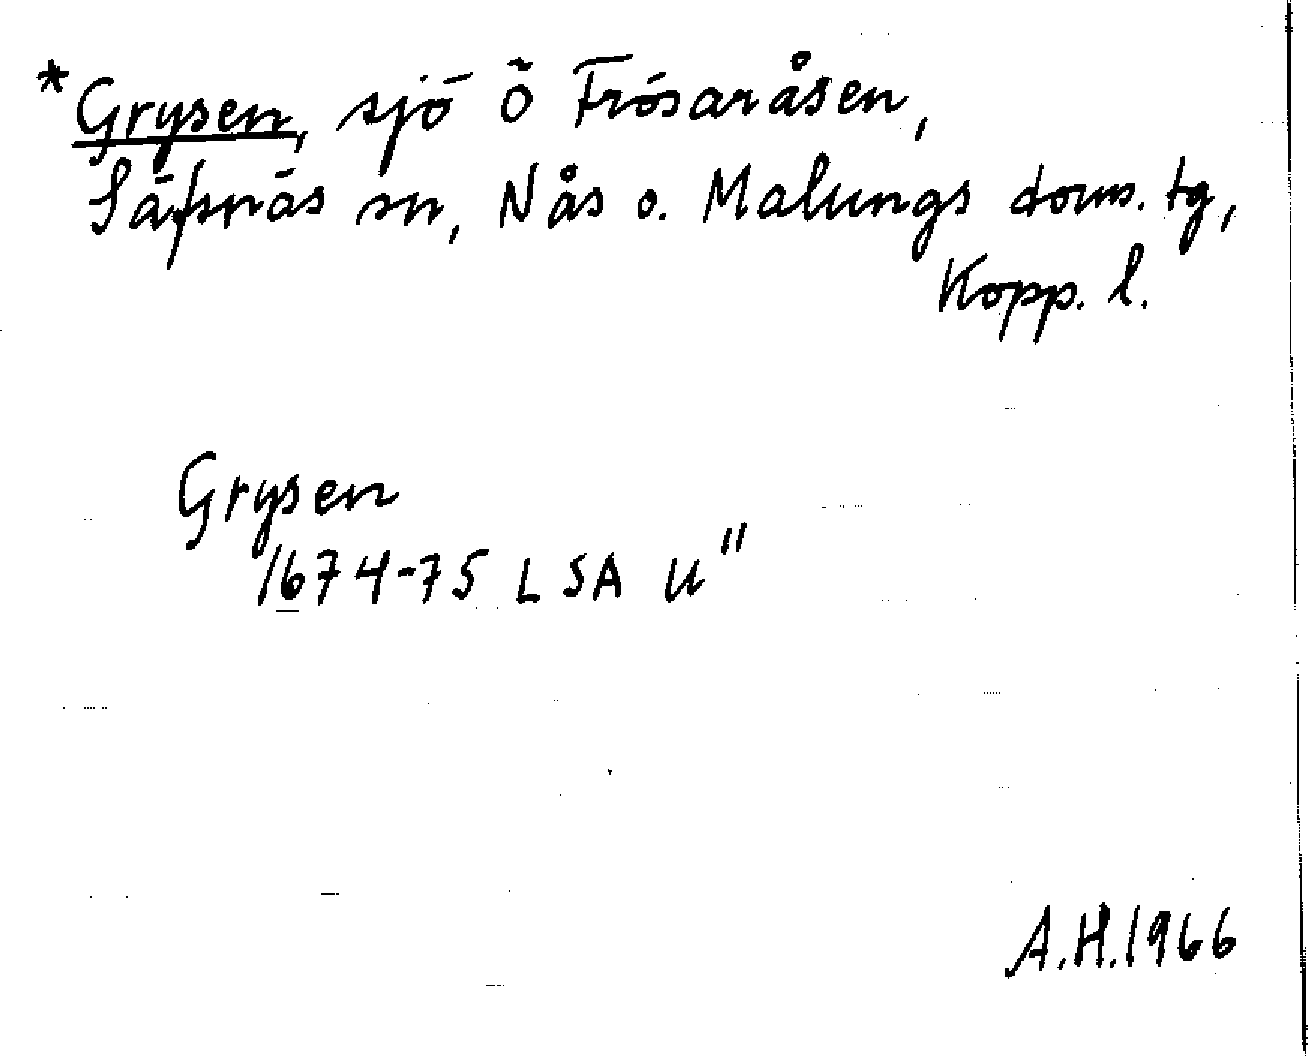 *Grysen, sjö Ö Frösaråsen,
Säfsnäs sn, Nås o. Malungs doms. tg,
Kopp. l.
Grysen
1674-75 LSA U"
A.H. 1966